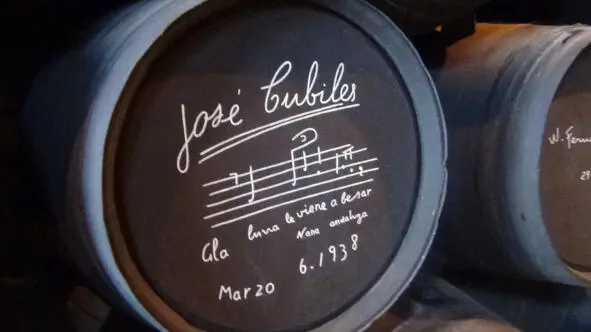 José Cubiles
A la luna le viene a besar
Nana andaluza
Marzo 6.1938
W. Fern
29